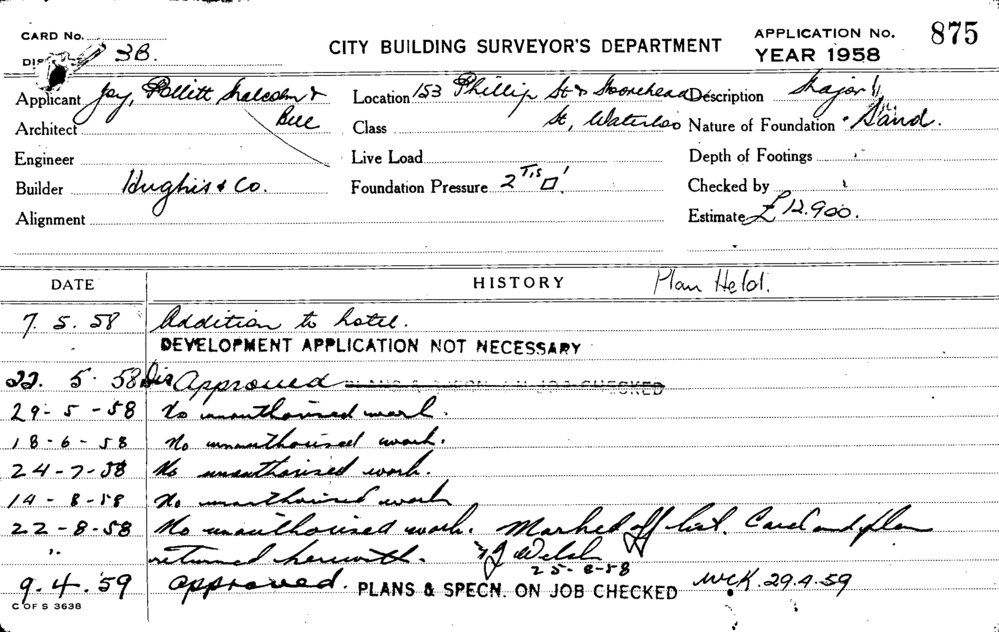 CARD No.
DIS 3B.
CITY BUILDING SURVEYOR'S DEPARTMENT
APPLICATION No. 875
YEAR 1958
Applicant Joy, Pollitt Malcolm &
Bee
Location 153 Phillip St & Moorehead
St, Waterloo
Description Major
Architect
Class
Nature of Foundation Sand.
Engineer
Live Load
Depth of Footings
Builder Hughis & Co.
Foundation Pressure 2 T's □'
Checked by
Alignment
Estimate £12.900.
DATE
HISTORY Plan Held.
7. 5. 58 Addition to hotel.
DEVELOPMENT APPLICATION NOT NECESSARY
22. 5. 58 Dis Approved PLANS & SPECN. ON JOB CHECKED
29-5-58 No unauthorised work.
18-6-58 No unauthorised work.
24-7-58 No unauthorised work.
14-8-58 No unauthorised work
22-8-58 No unauthorised work. Marked off list. Card and plan
" returned herewith. J Welsh
25-8-58
9.4.59 approved. PLANS & SPECN. ON JOB CHECKED WCK. 29.4.59
C OF S 3638